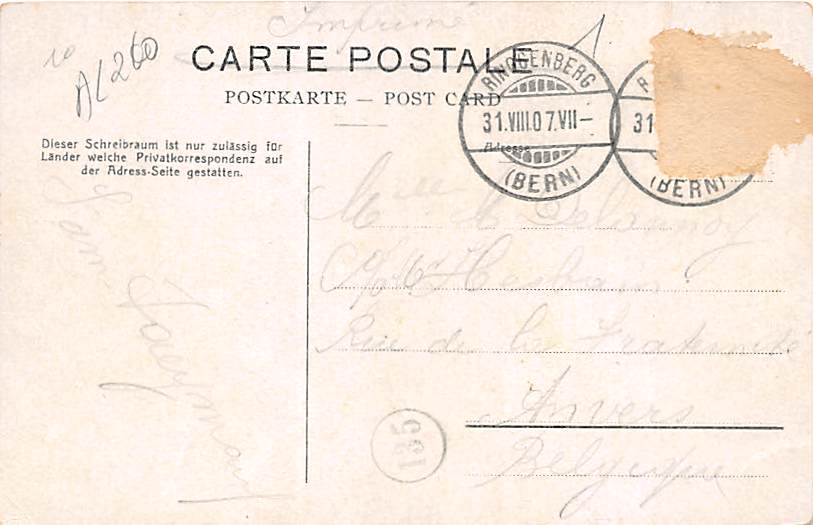 Imprimé
10
AL260
CARTE POSTALE
POSTKARTE — POST CARD
RINGGENBERG
31.VIII.07.VII–
(BERN)
R
31
(BERN)
Adresse
Dieser Schreibraum ist nur zulässig für
Länder welche Privatkorrespondenz auf
der Adress-Seite gestatten.
Mlle M Delannoy
Rue de la Fraternité
Anvers
Belgique
135